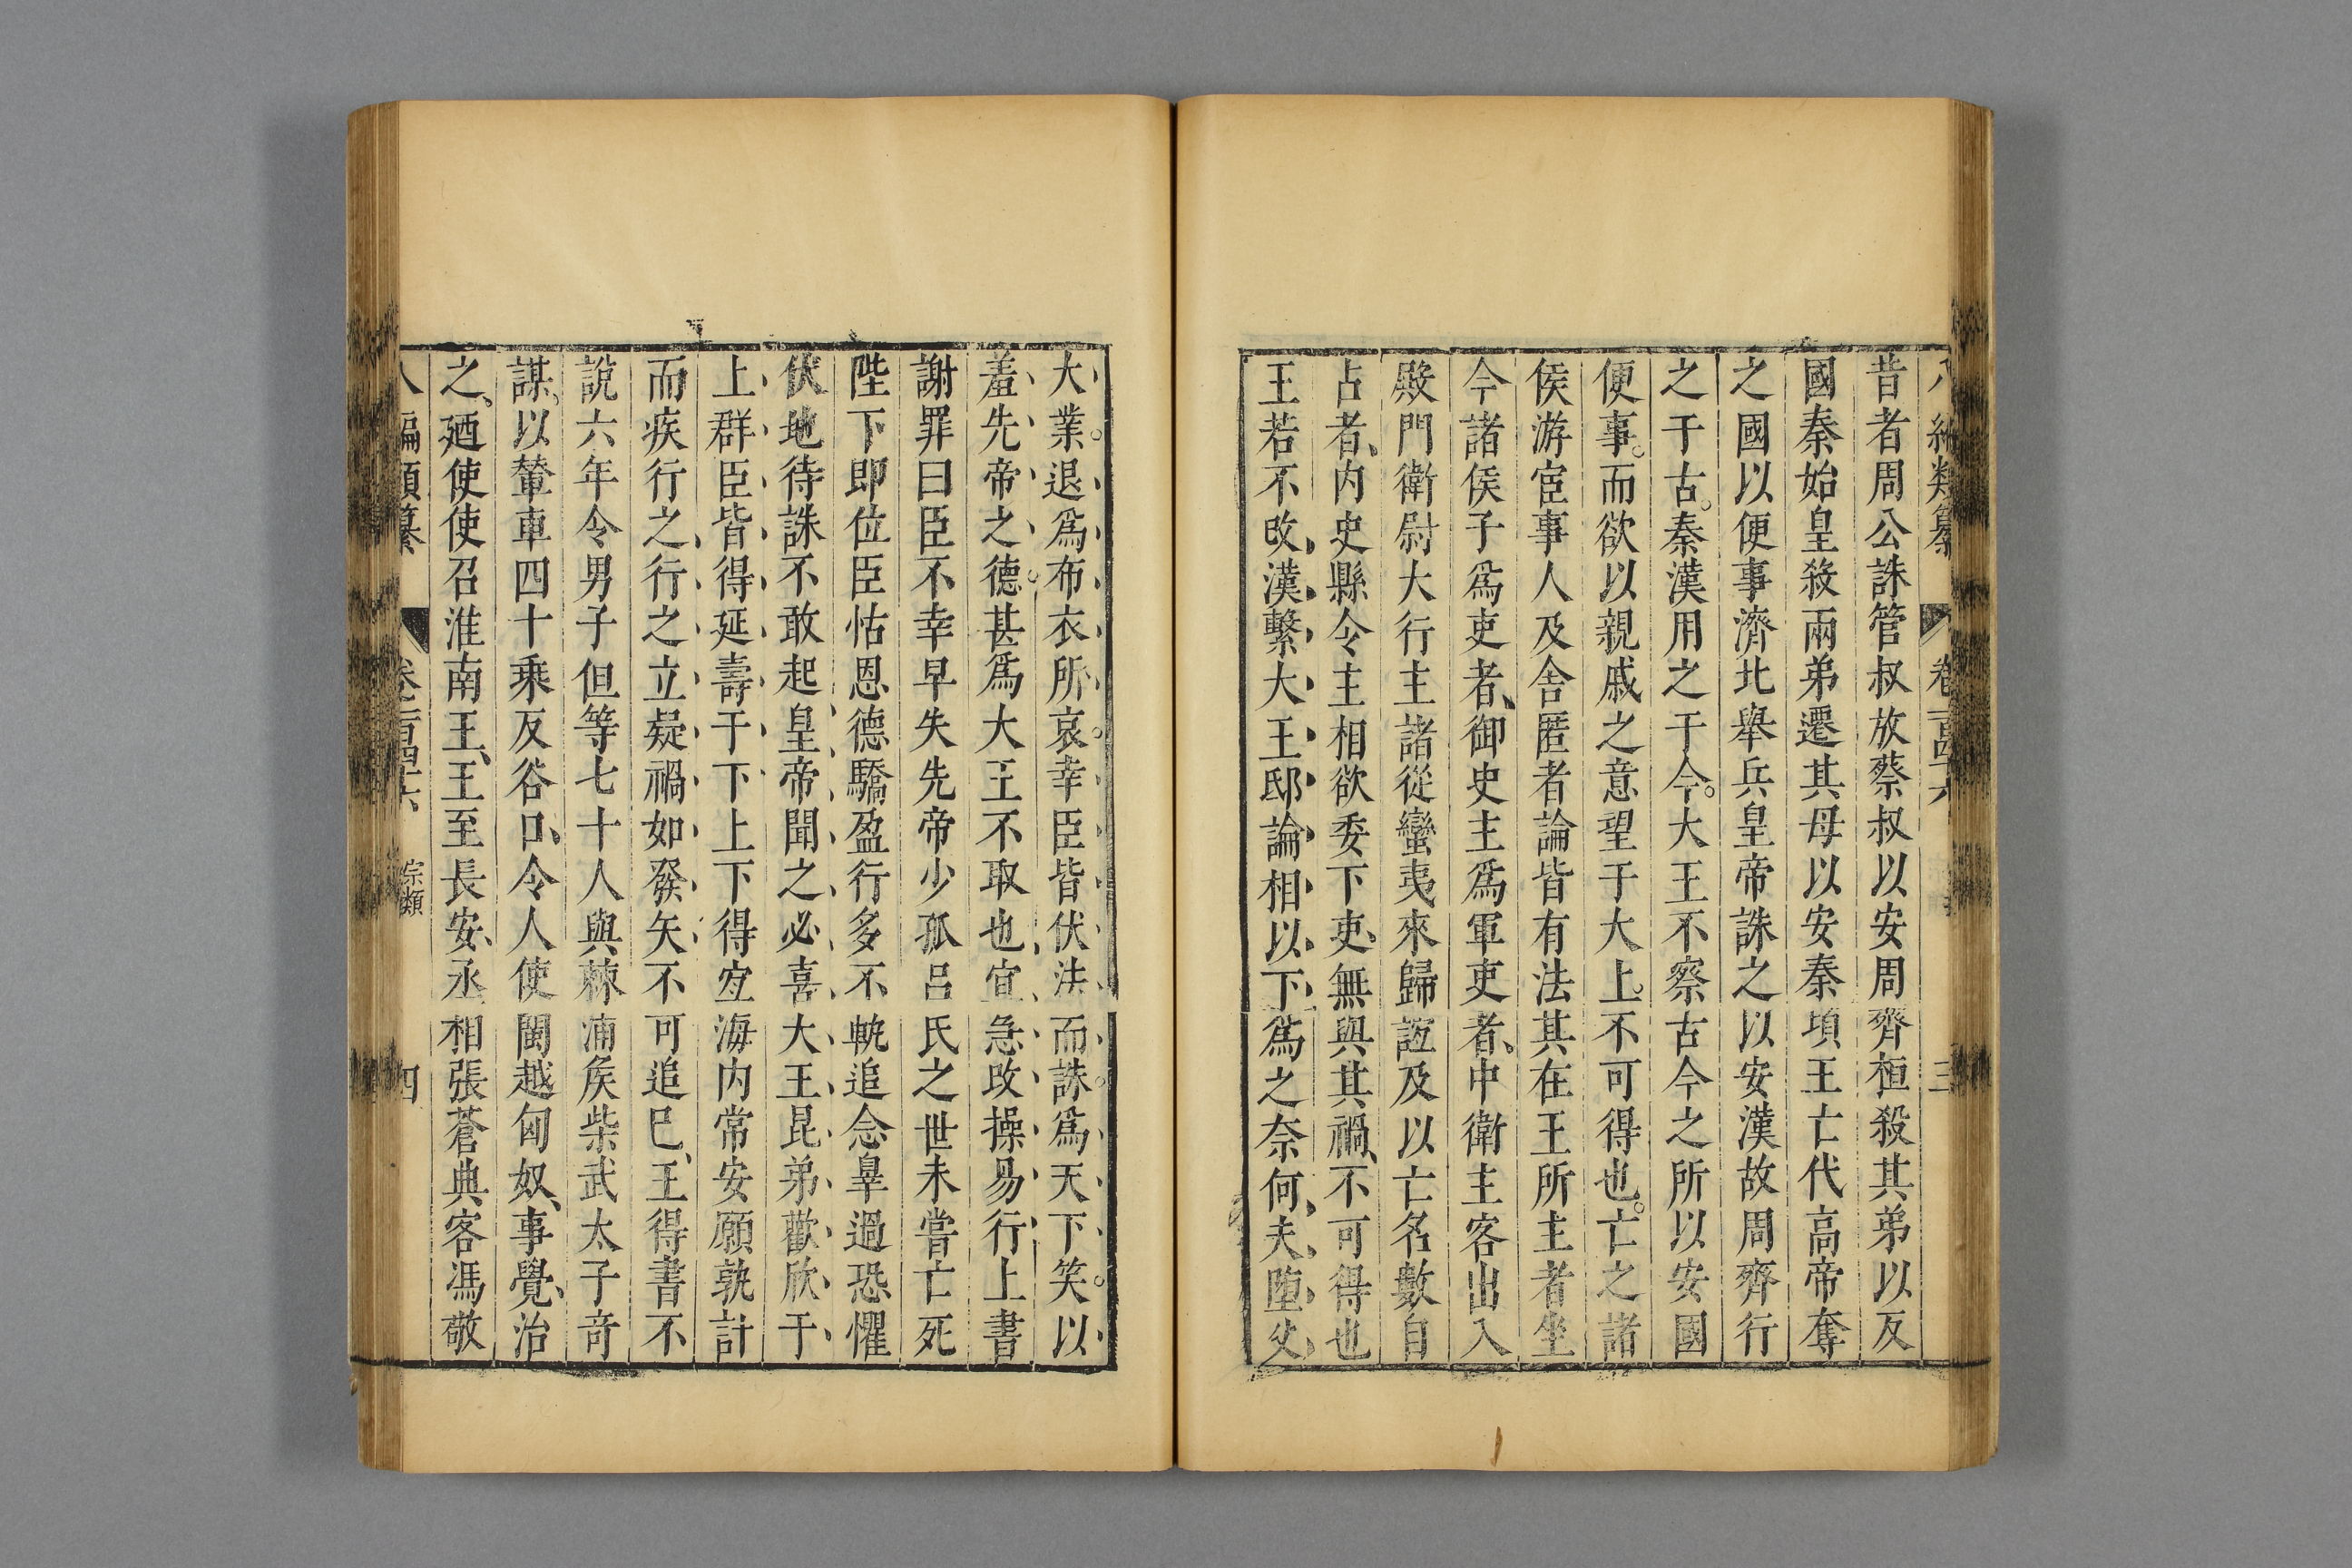 八編類纂 卷一百四十六 三
昔者周公誅管叔放蔡叔以安周齊桓殺其弟以反
國秦始皇殺兩弟遷其母以安秦項王亡代高帝奪
之國以便事濟北舉兵皇帝誅之以安漢故周齊行
之于古秦漢用之于今大王不察古今之所以安國
便事而欲以親戚之意望于大上不可得也亡之諸
侯游宦事人及舍匿者論皆有法其在王所主者坐
今諸侯子爲吏者御史主爲軍吏者中衛主客出入
殿門衛尉大行主諸從蠻夷來歸誼及以亡名數自
占者內史縣令主相欲委下吏無與其禍不可得也
王若不改漢繫大王邸論相以下爲之奈何夫墮父
大業退爲布衣所哀幸臣皆伏法而誅爲天下笑以
羞先帝之德甚爲大王不取也宜急改操易行上書
謝罪曰臣不幸早失先帝少孤呂氏之世未嘗亡死
陛下即位臣怙恩德驕盈行多不軌追念辠過恐懼
伏地待誅不敢起皇帝聞之必喜大王昆弟歡欣于
上群臣皆得延壽于下上下得宜海內常安願孰計
而疾行之行之立疑禍如發矢不可追已王得書不
說六年令男子但等七十人與棘蒲矦柴武太子奇
謀以輦車四十乘反谷口令人使閩越匈奴事覺治
之廼使使召淮南王王至長安丞相張蒼典客馮敬
八編類纂 卷一百四十六 宗類 四